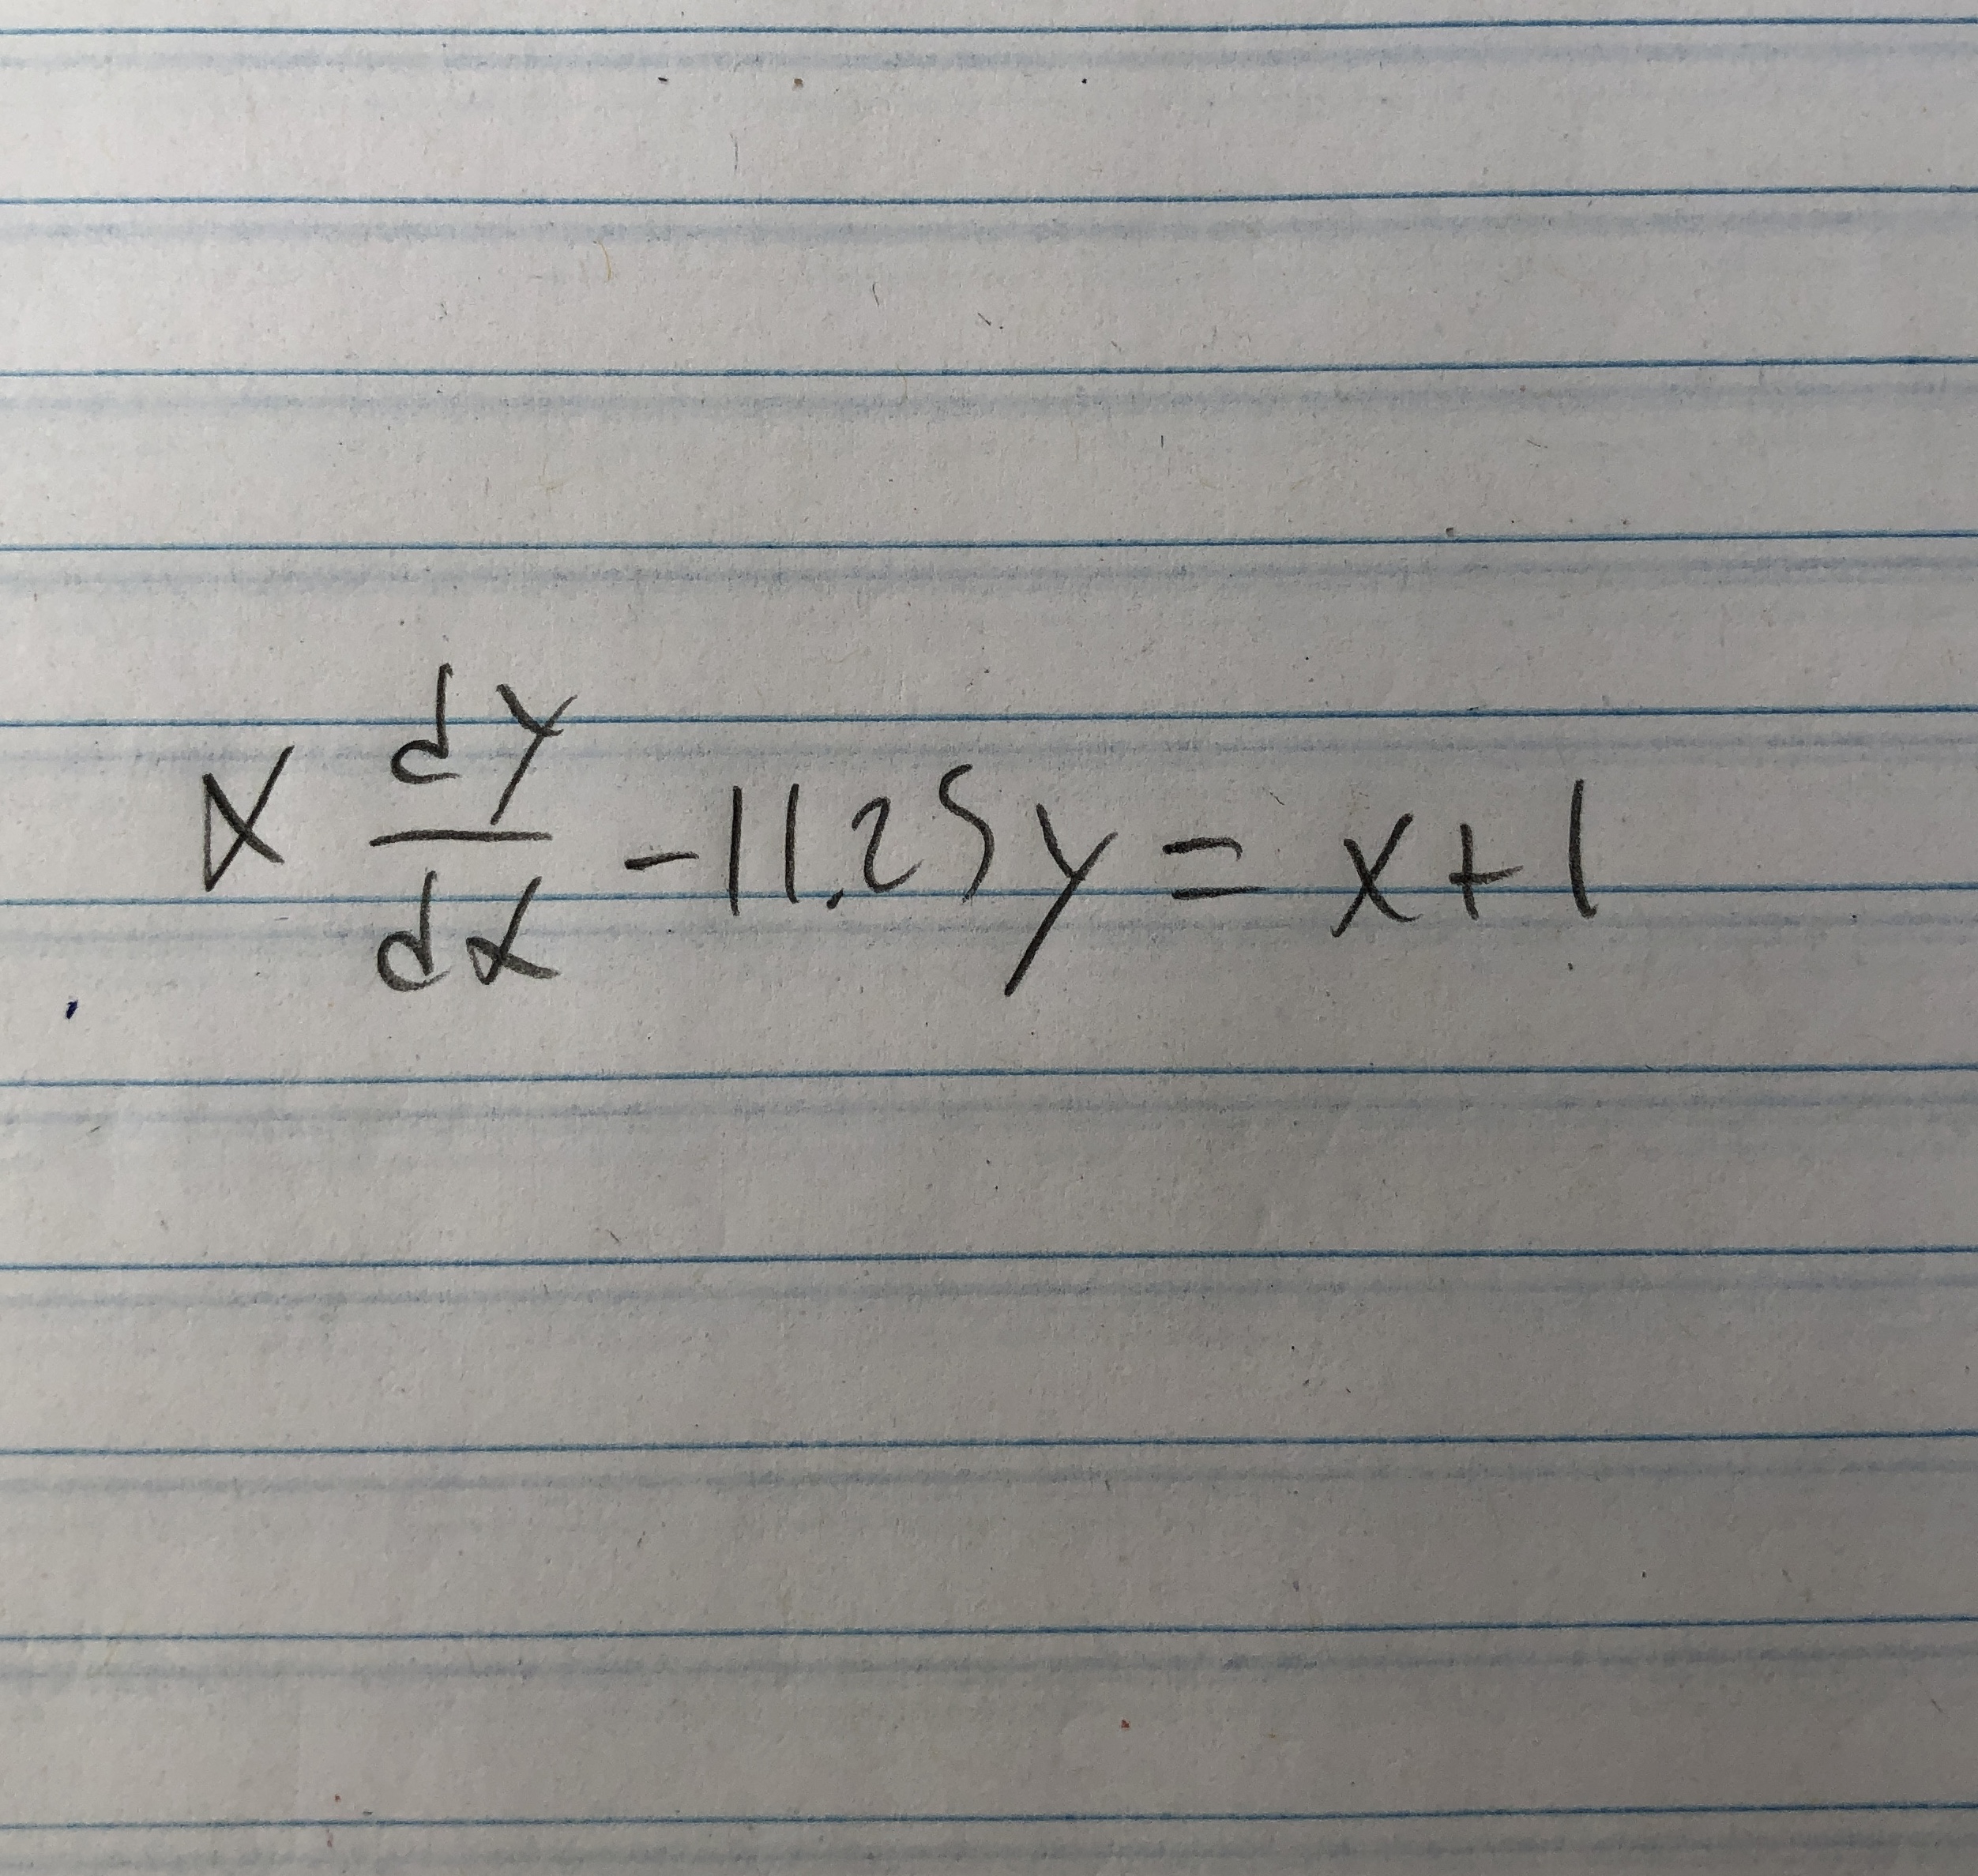 x dy/dx - 11.25y = x + 1